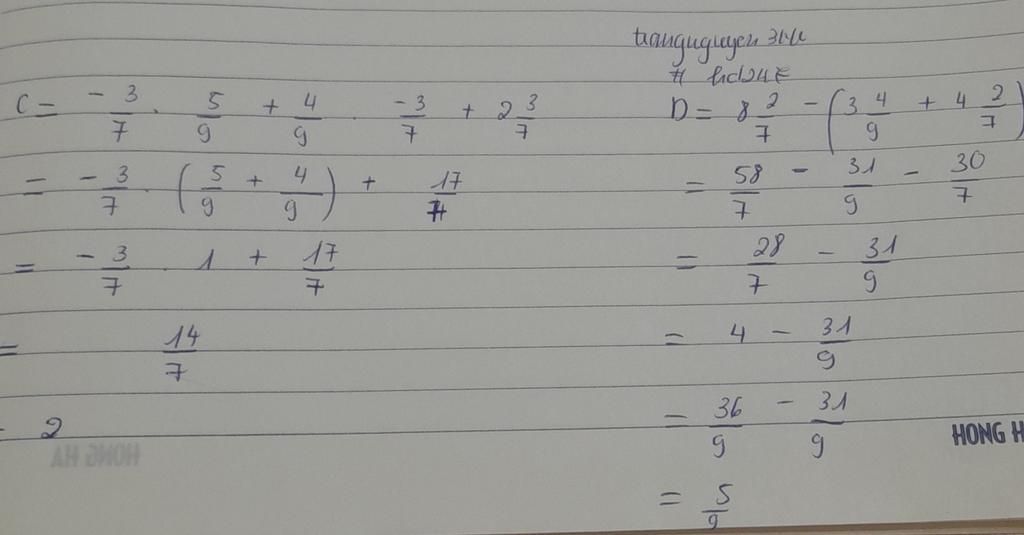 C = -3/7 . 5/9 + 4/9 . -3/7 + 2 3/7
= -3/7 . (5/9 + 4/9) + 17/7
= -3/7 . 1 + 17/7
= 14/7
= 2
D = 8 2/7 - (3 4/9 + 4 2/7)
= 58/7 - 31/9 - 30/7
= 28/7 - 31/9
= 4 - 31/9
= 36/9 - 31/9
= 5/9
HONG H
HONG HA